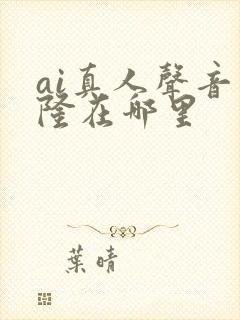 ai真人聲音
隆在哪里
葉晴